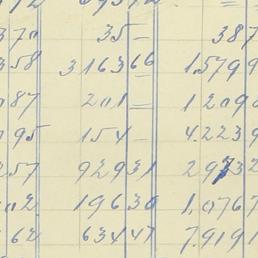 370 35 - 387
358 3163 66 1.5799
087 201 = 12090
095 154 - 4.2239
257 929 31 29732
002 196 30 1.0767
62 634 47 7.9191